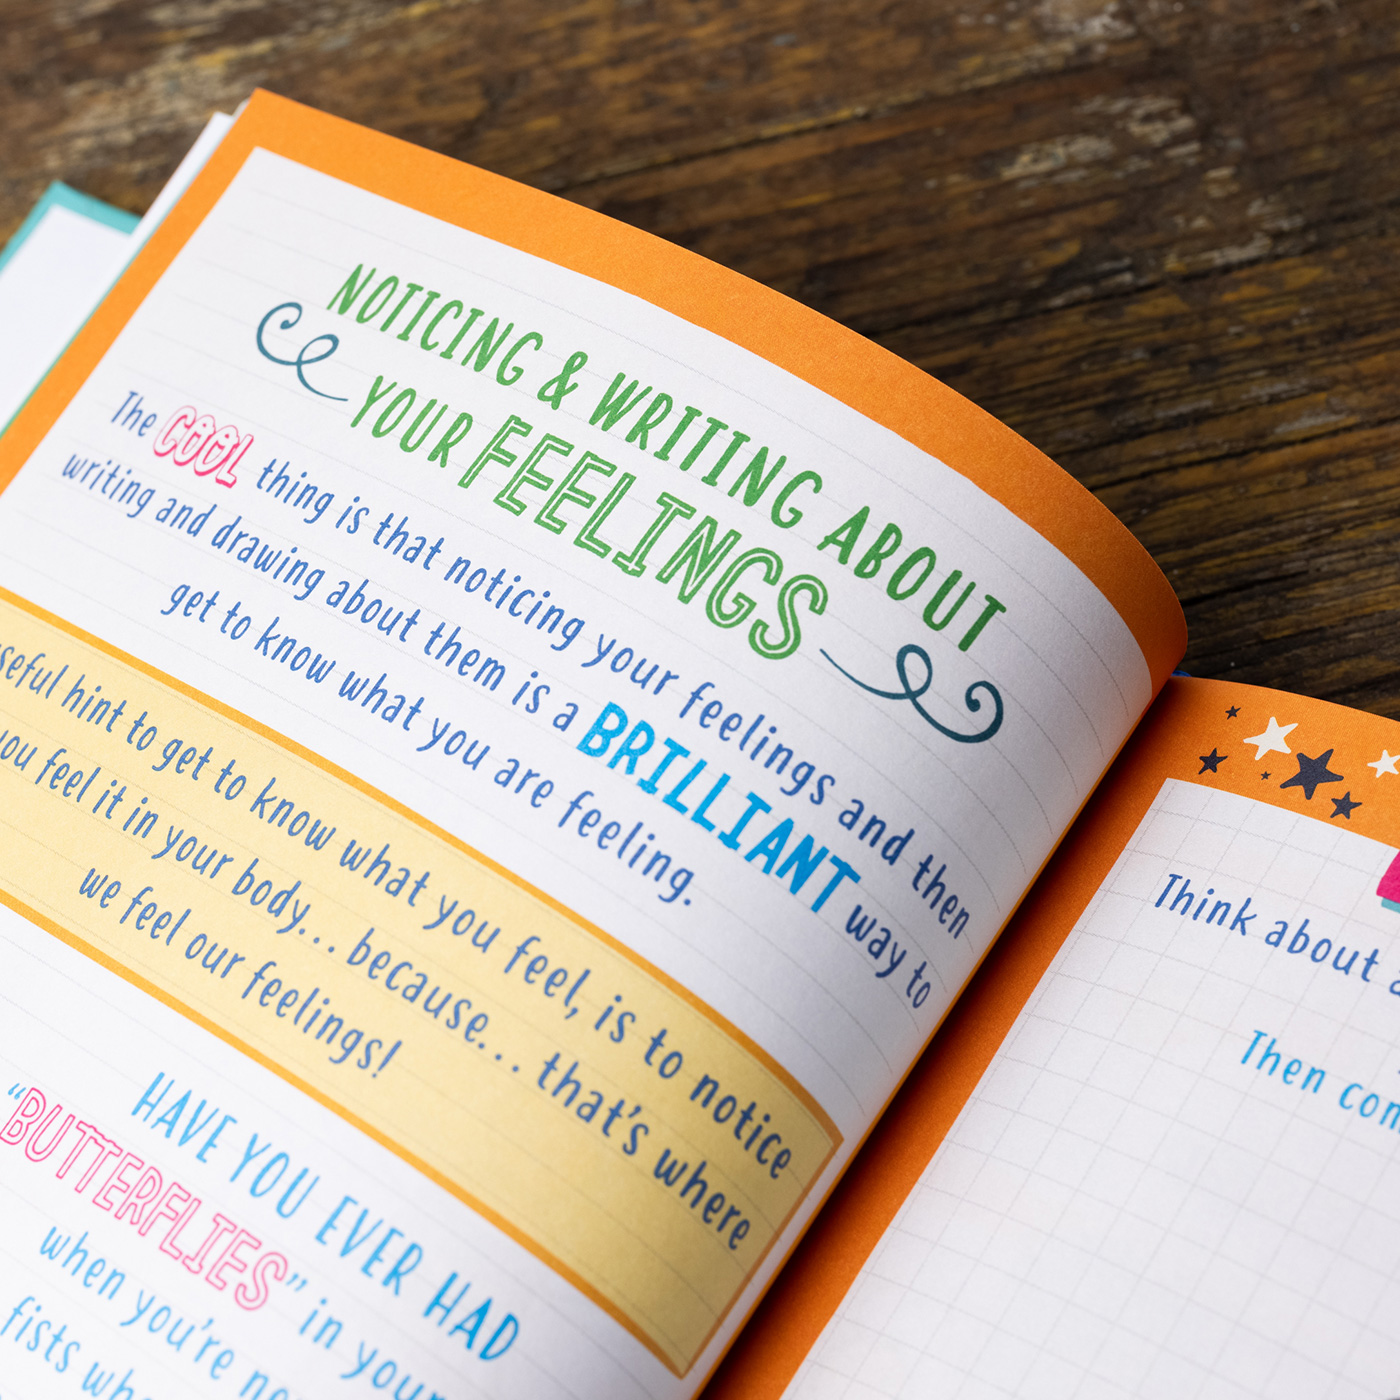 NOTICING & WRITING ABOUT
YOUR FEELINGS
The COOL thing is that noticing your feelings and then
writing and drawing about them is a BRILLIANT way to
get to know what you are feeling.
hint to get to know what you feel, is to notice
you feel it in your body... because... that's where
we feel our feelings!
HAVE YOU EVER HAD
"BUTTERFLIES" in your
when you're
fists
Think about
Then